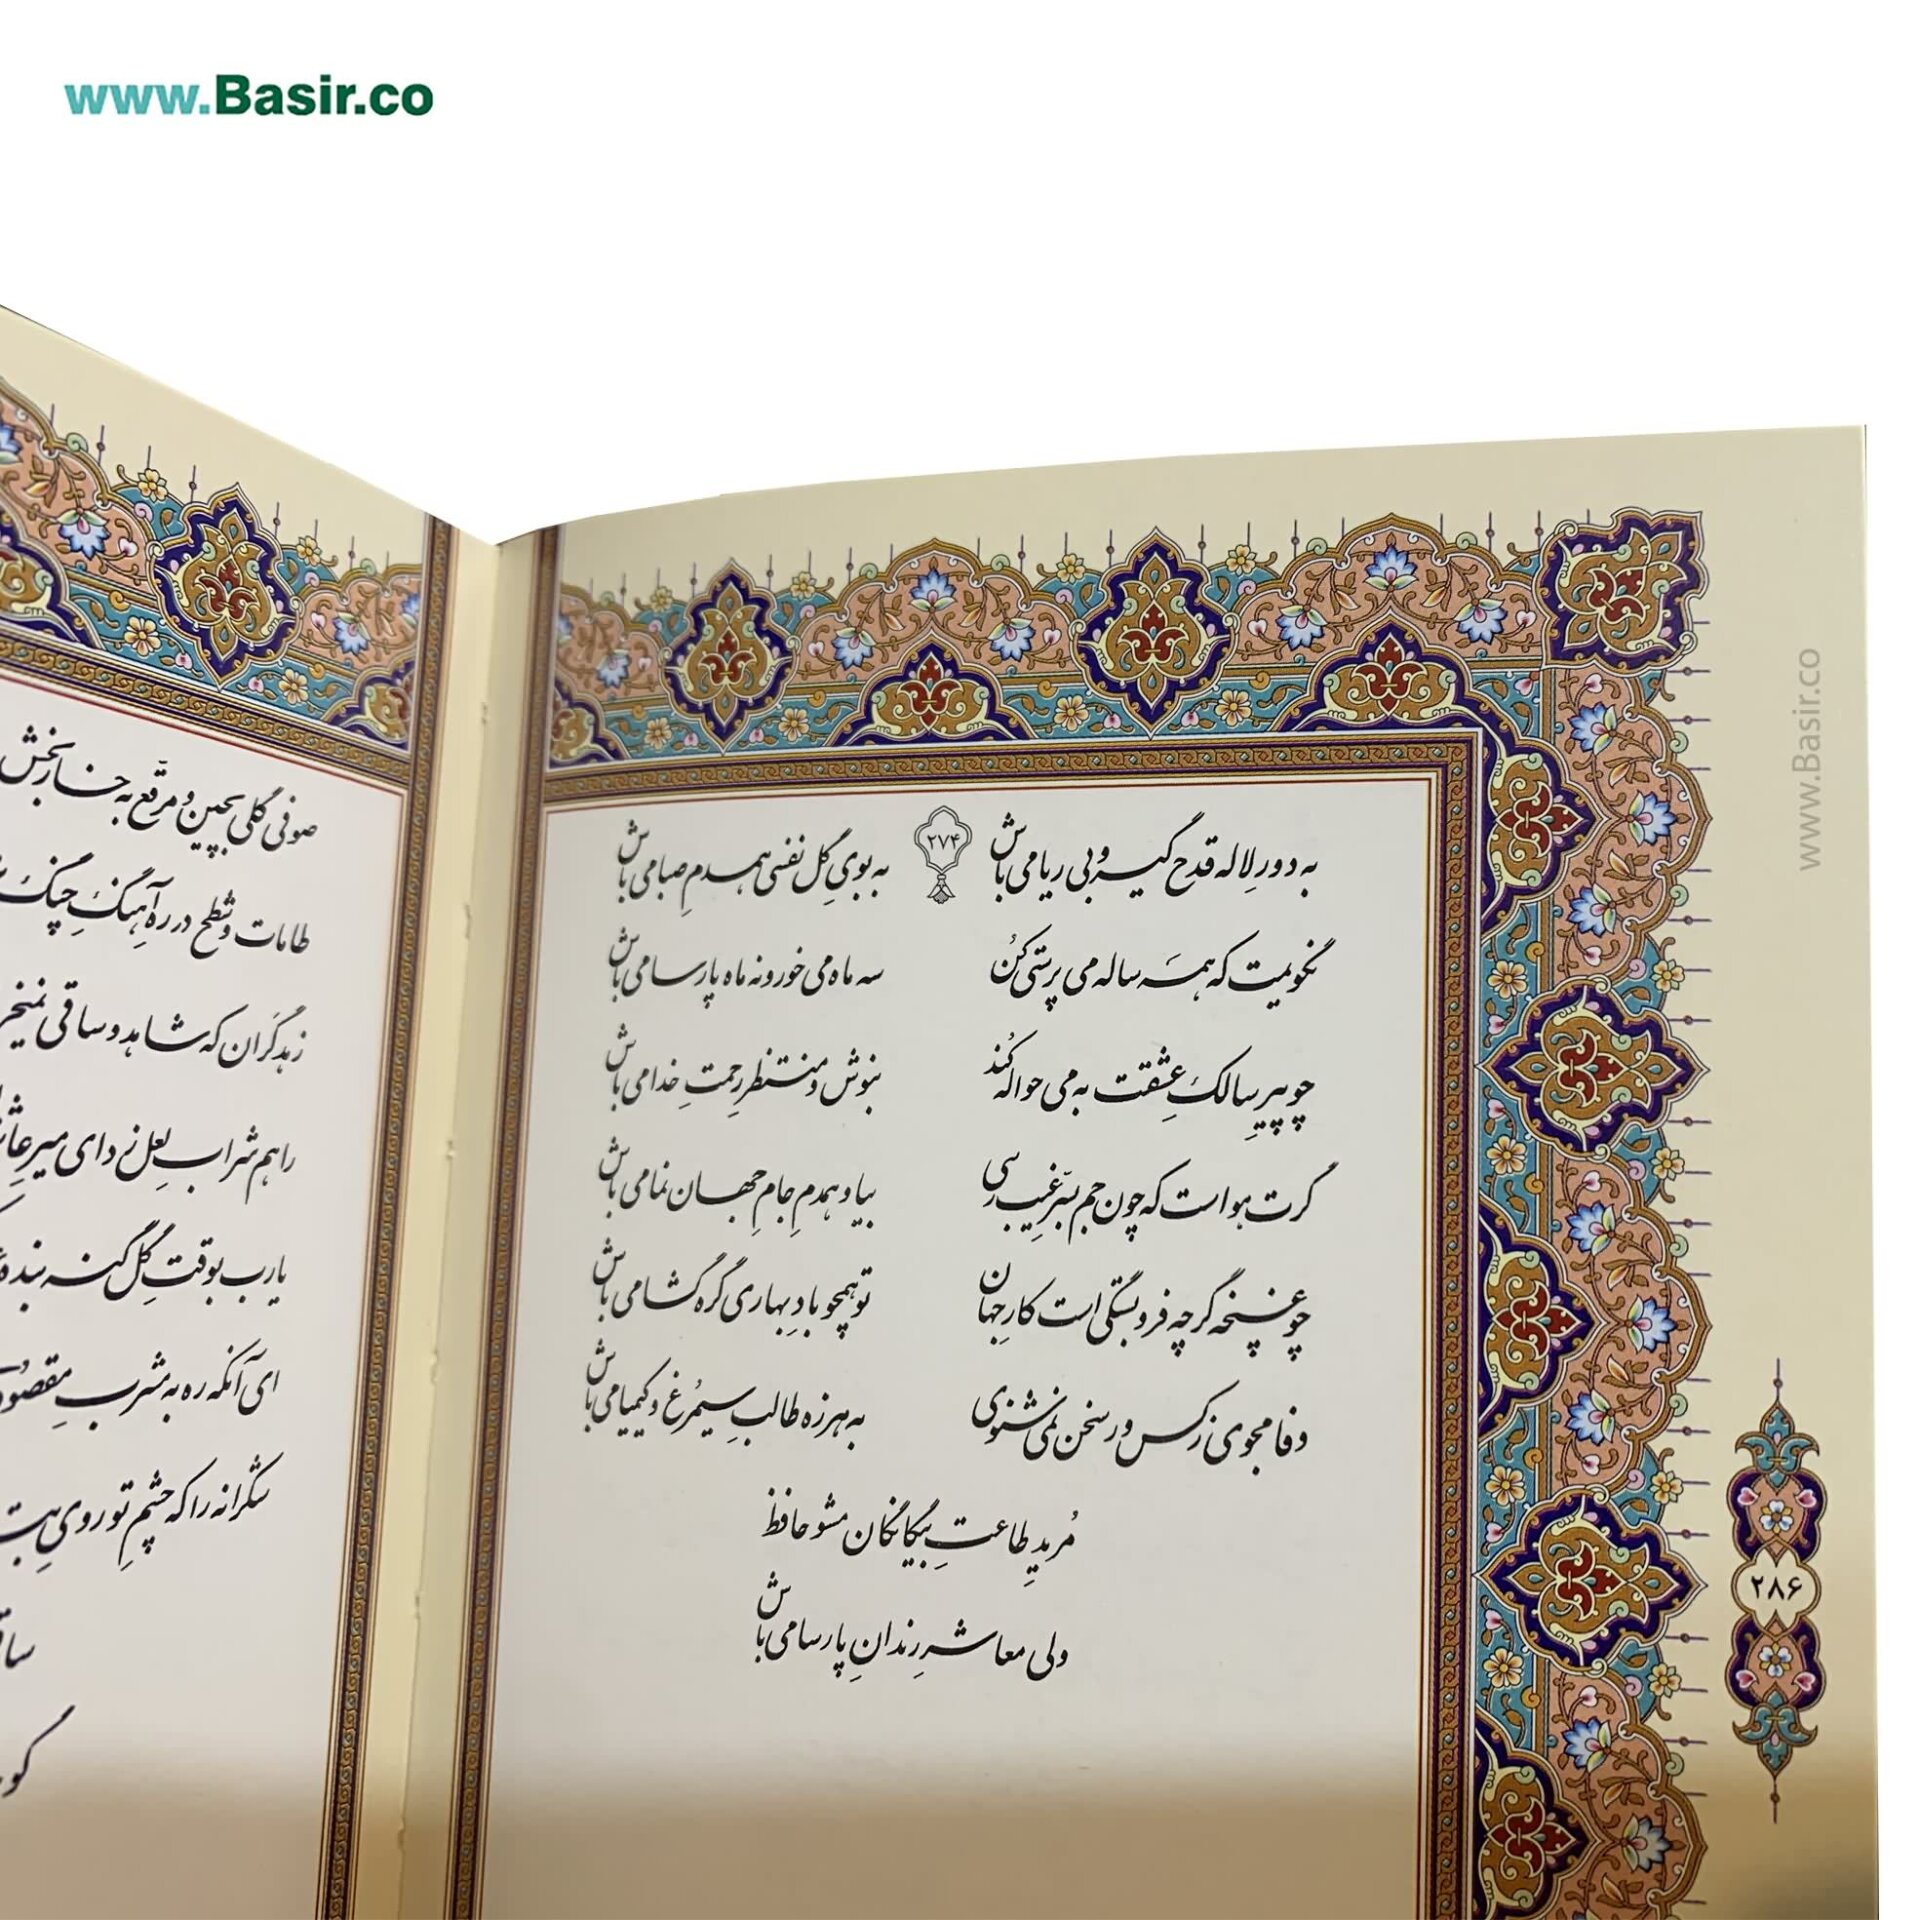 www.Basir.co
۲۷۴
به دور لاله قدح گیر و بی ریا می باش
به بوی گل نفسی همدم صبا می باش
نگویمت که همه ساله می پرستی کن
سه ماه می خور و نه ماه پارسا می باش
چو پیر سالک عشقت به می حواله کند
بنوش و منتظر رحمت خدا می باش
گرت هواست که چون جم به سر غیب رسی
بیا و همدم جام جهان نما می باش
چو غنچه گرچه فروبستگی است کار جهان
تو همچو باد بهاری گره گشا می باش
وفا مجوی ز کس ور سخن نمی شنوی
به هرزه طالب سیمرغ و کیمیا می باش
مرید طاعت بیگانگان مشو حافظ
ولی معاشر رندان پارسا می باش
۲۸۶
www.Basir.co
صوفی گلی بچین و مرقع به خار بخش
طامات و شطح در ره آهنگ چنگ
زهد گران که شاهد و ساقی نمیخرند
راهم شراب لعل زد ای میر
یارب بوقت گل گنه بنده
ای آنکه ره به مشرب مقصود
شکرانه را که چشم تو روی